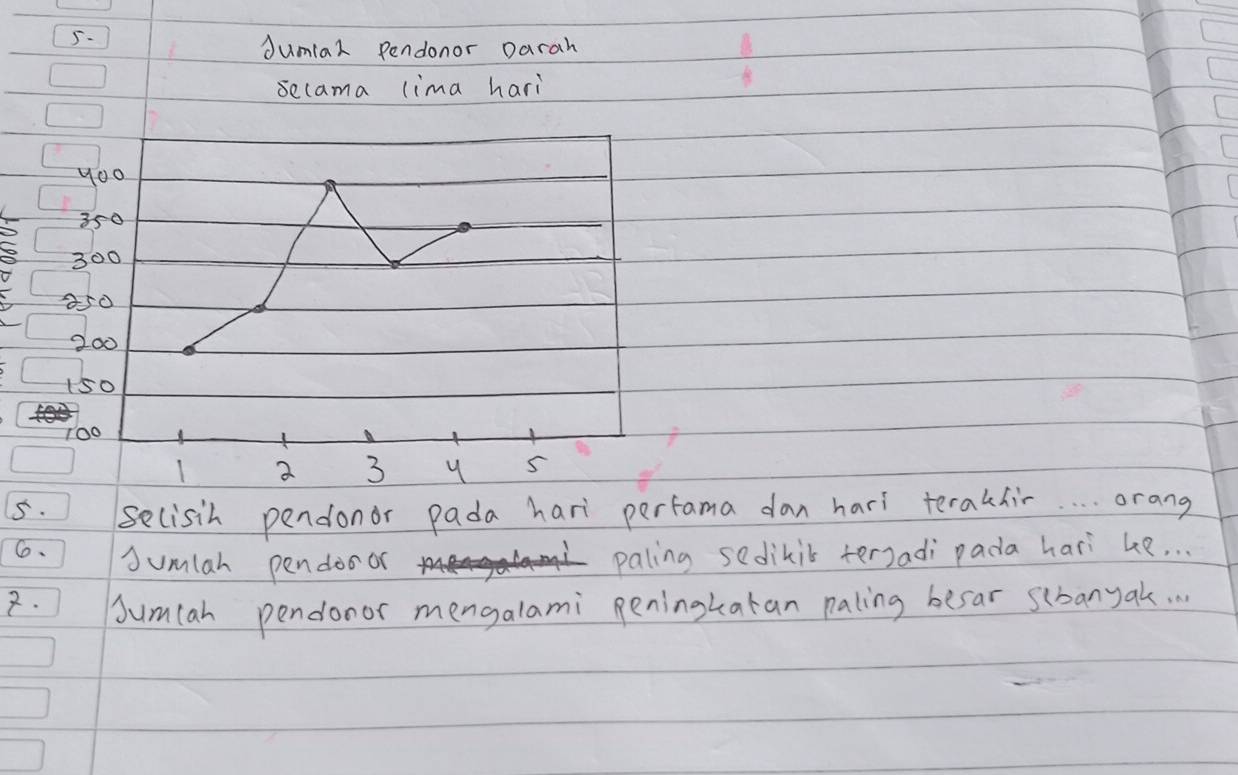 5.
Jumlah Pendonor Darah
Selama lima hari
400
350
300
250
200
150
100
1 2 3 4 5
5. Selisih pendonor pada hari pertama dan hari terakhir .... orang
6. Jumlah pendonor paling sedikit terjadi pada hari ke...
7. Jumlah pendonor mengalami peningkatan paling besar sebanyak...